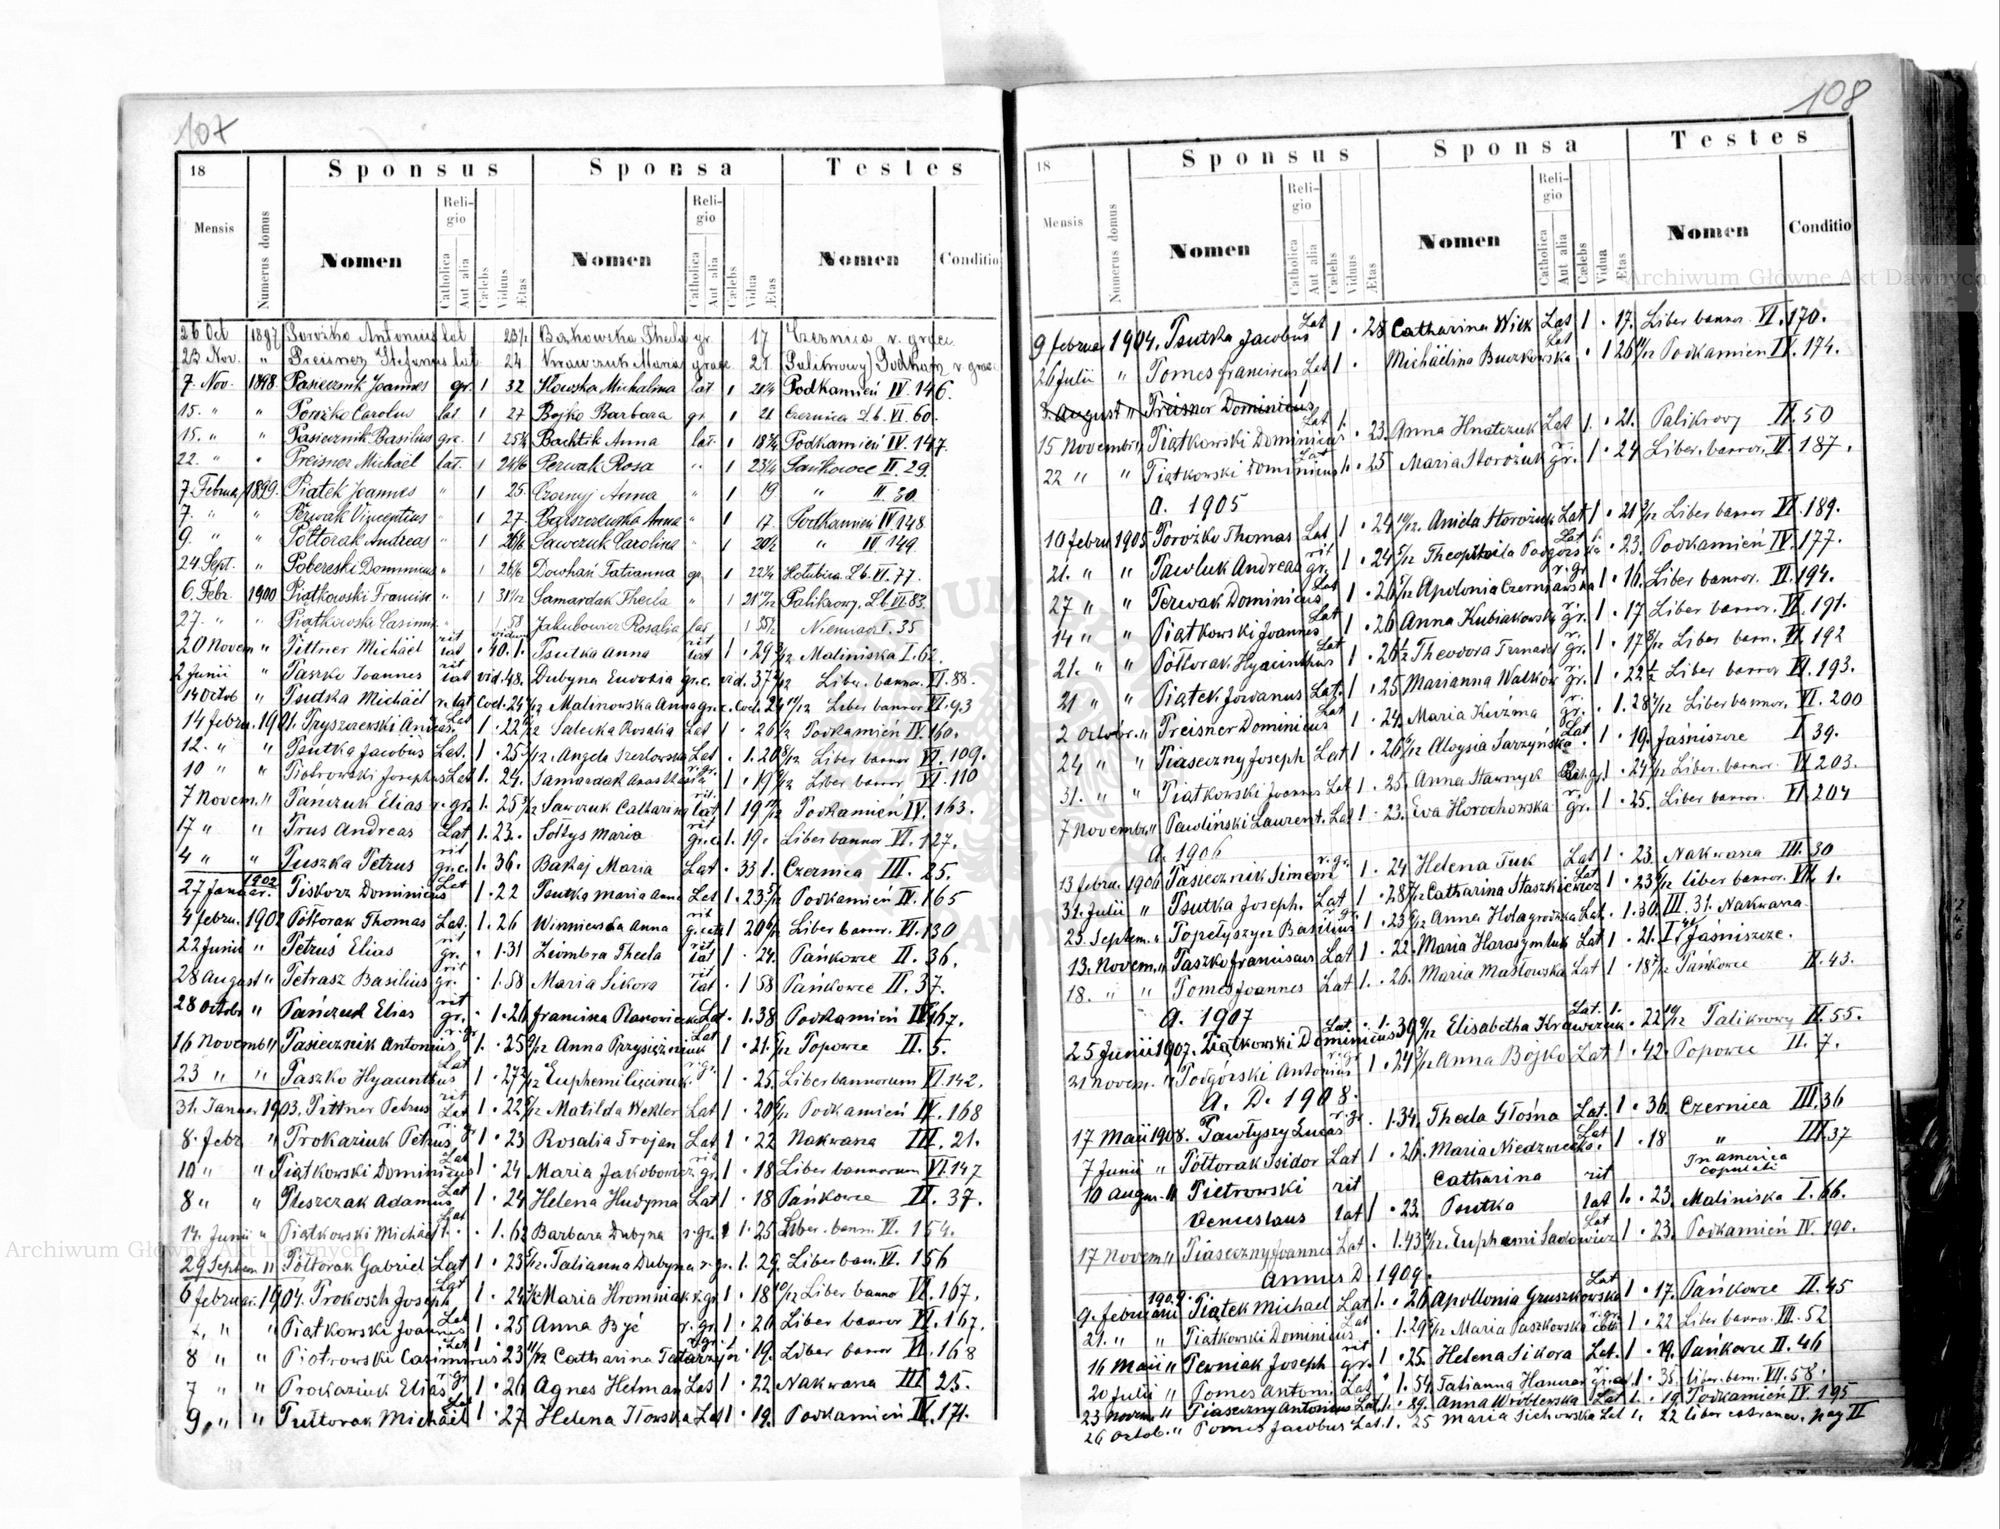 107
18
Sponsus
Sponsa
Testes
Mensis
Numerus domus
Nomen
Religio
Catholica
Aut alia
Cælebs
Viduus
Ætas
Nomen
Religio
Catholica
Aut alia
Cælebs
Vidua
Ætas
Nomen
Conditio
26 Oct 1897 Porożko Antonius lat 17 Czernica
23 Nov. " Preisner Stefanus lat 24 21
7. Nov. 1898. Pasiecznik Joannes gr. 1 32 Michalina lat 1 Podkamień IV. 146.
15. " " Porożko Carolus lat. 1 27 Bojko Barbara gr. 1 21 Czernica Lb. VI. 60.
15. " " Pasiecznik Basilius grc. 1 Bachtik Anna lat. 1 Podkamień IV. 147.
22. " " Preisner Michäel lat. 1 Perwak Rosa " 1 II. 29.
7. Februa 1899. Piątek Joannes " 1 25. Czornyj Anna " 1 19 " II. 30.
7. " " Perwak Vincentius " 1 27. Barszczewska Anna " 1 17. Podkamień IV 148
9. " " Półtorak Andreas " 1 Sawczuk Carolina " 1 " IV 149.
24 Sept. " Pobereski Dominicus " 1 Dowhań Tatianna gr. 1 Hołubica Lb. VI. 77.
6. Febr. 1900 Piątkowski Francisc " 1 Samardak Thecla " 1 Palikrowy. Lb VI. 83.
27. " " Piątkowski Casimir Jakubowicz Rosalia lat Niemiacz I. 35
20 Novem " Pittner Michäel rit lat . 40. 1. Psutka Anna rit lat 1 . 29 Maliniska I. 62.
2 Junii " Paszko Joannes rit lat vid. 48. Dubyna Eudoxia gr.c. vid. 37 Liber. bannor. VI. 88.
14 Octob " Psutka Michäel r. lat Coel. 24 Malinowska Anna gr.c. Coel. 24 Liber bannor VI. 93
14 februa. 1901. Pryszczewski Andreas. Lat 1 . 22 Sałecka Rosalia Lat 1 . 26 Podkamień IV. 160.
12. " " Psutka Jacobus Lat. 1 . 25 Angela Szerlowska Lat . 1. 20 Liber bannor VI. 109.
10 " " Piotrowski Josephus Lat 1. 24. Samardak Anastasia r. gr. 1 . 19 Liber bannor. VI. 110
7 Novem. " Pańczuk Elias r. gr. 1. 25 Sawczuk Catharina rit. lat 1 19 Podkamień IV. 163.
17 " " Prus Andreas Lat 1. 23. Sołtys Maria rit gr.c. 1 . 19. Liber bannor VI. 127.
4 " " Puszka Petrus rit gr.c. 1. 36. Bakaj Maria Lat . 33 1. Czernica III. 25.
27 Januar. 1902 Piskorz Dominicus Lat 1 . 22 Psutka Maria Anna Lat 1 . 23 Podkamień IV. 165
4 febru. 1902 Półtorak Thomas Lat. 1. 26 Winniewska Anna rit g. cath 1 20 Liber bannor. VI. 130
22 Junii " Petruś Elias rit gr. . 1.31 Ziombra Thecla rit lat 1 . 24. Pańkowce II. 36.
28 August " Petrasz Basilius rit gr. . 1.58 Maria Sikora rit lat . 1 58 Pańkowce II. 37.
28 Octobr " Pańczuk Elias rit gr. . 1.26 Francisca Lat . 1.38. Podkamień IV. 167.
16 Novemb " Pasiecznik Antonius r. gr 1. . 25 Anna Przysiężniuk Lat 1 . 21. Popowce II. 5.
23 " " Paszko Hyacinthus Lat 1 . 27 Euphemi r. gr. 1 . 25. Liber bannorum VI. 142.
31. Januar 1903. Pittner Petrus rit Lat 1 . 22 Matilda Wekler Lat 1 . 20 Podkamień IV. 168
8. febr. " Prokaziuk Petrus r. gr. 1 . 23 Rosalia Trojan Lat 1 . 22 Nakwasza III. 21.
10 " " Piątkowski Dominicus Lat 1 . 24 Maria Jakobowicz rit gr. 1 . 18 Liber bannorum VI. 147
8 " " Pleszczak Adamus Lat 1 . 24 Helena Hudyma Lat 1 . 18 Pańkowce II. 37.
14. Junii " Piątkowski Michäel Lat . 1. 62 Barbara Dubyna r. gr. 1 . 35 Liber. bann. VI. 154.
29 Septem " Półtorak Gabriel Lat 1 . 23 Tatianna Dubyna r. gr. 1. 29. Liber ban. VI. 156
6 februar. 1904. Prokosch Joseph Lat 1 . 24 Maria Hromniak r. gr 1 . 18 Liber bannor VI. 167.
7. " " Piątkowski Joannes Lat 1 . 25 Anna Być r. gr. 1 . 20 Liber bannor VI. 167.
8 " " Piotrowski Casimirus Lat 1 . 23 Catharina Tatarzyn r. gr. 1 . 19. Liber bannor VI. 168
7 " " Prokaziuk Elias r. gr 1 . 26 Agnes Hetman Lat 1 . 22 Nakwasza III 25.
9. " " Pułtorak Michäel Lat 1 . 27 Helena Iłowska Lat 1 . 19. Podkamień IV. 171.
108
18
Sponsus
Sponsa
Testes
Mensis
Numerus domus
Nomen
Religio
Catholica
Aut alia
Cælebs
Viduus
Ætas
Nomen
Religio
Catholica
Aut alia
Cælebs
Vidua
Ætas
Nomen
Conditio
9 februa. 1904. Psutka Jacobus Lat 1 . 28 Catharina Wilk Lat 1 . 17. Liber bannor. VI. 170.
26 Julii " Pomes Franciscus Lat 1 . Michäelina Buczkowska Lat . 1 26 Podkamień IV. 174.
August " Preisner Dominicus
15 Novembr " Piątkowski Dominicus Lat 1. . 23. Anna Hnatczuk Lat 1. . 21. Palikrowy II. 50
22 " " Piątkowski Dominicus Lat 1. . 25 Maria Storożuk r. gr. 1 . 24 Liber. bannor. VI. 187.
A. 1905
10 febru. 1905 Porożko Thomas Lat 1 . 24 Anicla Storożuk Lat 1 . 21 Liber bannor VI. 189.
21. " " Pawluk Andreas rit gr. 1 . 24 Theophila Podgórska Lat 1. . 23. Podkamień IV. 177.
27 " " Perwak Dominicus Lat 1 . 26 Apolonia Czerniawska r. gr 1 . 16. Liber bannor. VI. 194.
14 " " Piątkowski Joannes Lat 1 . 26 Anna Kubiakowska r. gr. 1 . 17 Liber bannor. VI. 191.
21. " " Półtorak Hyacinthus Lat 1 . 26 Theodora r. gr. 1 . 17 Liber bann. VI. 192
21 " " Piątek Jordanus Lat. 1 . 25 Marianna Walków r. gr. 1 . 22 Liber bannor VI. 193.
2 Octobr. " Preisner Dominicus Lat 1 . 24. Maria Kuźma r. gr. . 1. 28 Liber bannor. VI. 200
24 " " Piaseczny Joseph Lat 1 . 26 Aloysia Sarzyńska Lat 1 . 19. Jaśniszcze I 39.
31. " " Piątkowski Joannes Lat 1 . 25. Anna Stawnyck gr. 1 . 24 Liber. bannor. VI 203.
7 Novembr " Pawliński Laurent. Lat 1 . 23. Eva Horochowska r. gr. 1 . 25. Liber bannor. VI 204
A. 1906
13 februa. 1906 Pasiecznik Simeon r. gr. 1 . 24 Helena Tuk Lat 1 . 23. Nakwasza III. 30
31. Julii " Psutka Joseph. Lat 1 . 28 Catharina Staszkiewicz Lat 1 . 23 Liber bannor. VII. 1.
23. Septem. " Popełyszyn Basilius r. gr. 1 . 23 Anna Hołogrodzka Lat. . 1. 30. III. 31. Nakwasza
13. Novem. " Paszko Franciscus Lat 1 . 22. Maria Harasymluk Lat 1 . 21. I 41 Jaśniszcze.
18. " " Pomes Joannes Lat 1. . 26. Maria Masłowska Lat 1 . 18 Pańkowce II. 43.
A. 1907
25 Junii 1907. Piątkowski Dominicus Lat. . 1. 39 Elisabetha Krawczuk Lat. 1. . 22 Palikrowy II. 55.
21 Novem. " Podgórski Antonius r. gr 1 . 24 Anna Bojko Lat 1 . 42. Popowce II. 7.
A. D. 1908.
17 Maii 1908. Pawłyszy Lucas r. gr . 1. 34. Thecla Głośna Lat. 1 . 36. Czernica III. 36
7 Junii " Półtorak Isidor Lat 1 . 26. Maria Niedzwiecka. Lat 1 . 18 " III. 37
10 Augus. " Pietrowski Venceslaus rit lat 1 . 23. Catharina Psutka rit lat 1. . 23. In america copulati Maliniska I. 66.
17 Novem " Piaseczny Joannes Lat . 1.43 Euphemi Sadowicz Lat 1 . 23. Podkamień IV. 190.
Annus D. 1909.
9. februarii 1909. Piątek Michael Lat 1. . 26 Apollonia Gruszkowska Lat 1 . 17. Pańkowce II. 45
21. " " Piątkowski Dominicus Lat . 1. 29 Maria Paszkowska r. gr. 1 . 22 Liber bannor. VII. 52
16 Maii " Perniak Joseph rit gr. 1 . 25. Helena Sikora Lat. 1 . 19. Pańkowce II. 46
20 Julii " Pomes Antoni. Lat . 1. 54 Tatianna 1. 35. Liber. ban. VII. 58.
23 Novem. " Piaseczny Antonius Lat 1. . 29. Anna Wróblewska Lat 1. . 19. Podkamień IV. 195
26 Octob. " Pomes Jacobus Lat. 1. 25 Maria Sichowska Lat 1. 22 Liber extraneor. pag II
Archiwum Główne Akt Dawnych
Archiwum Główne Akt Dawnych